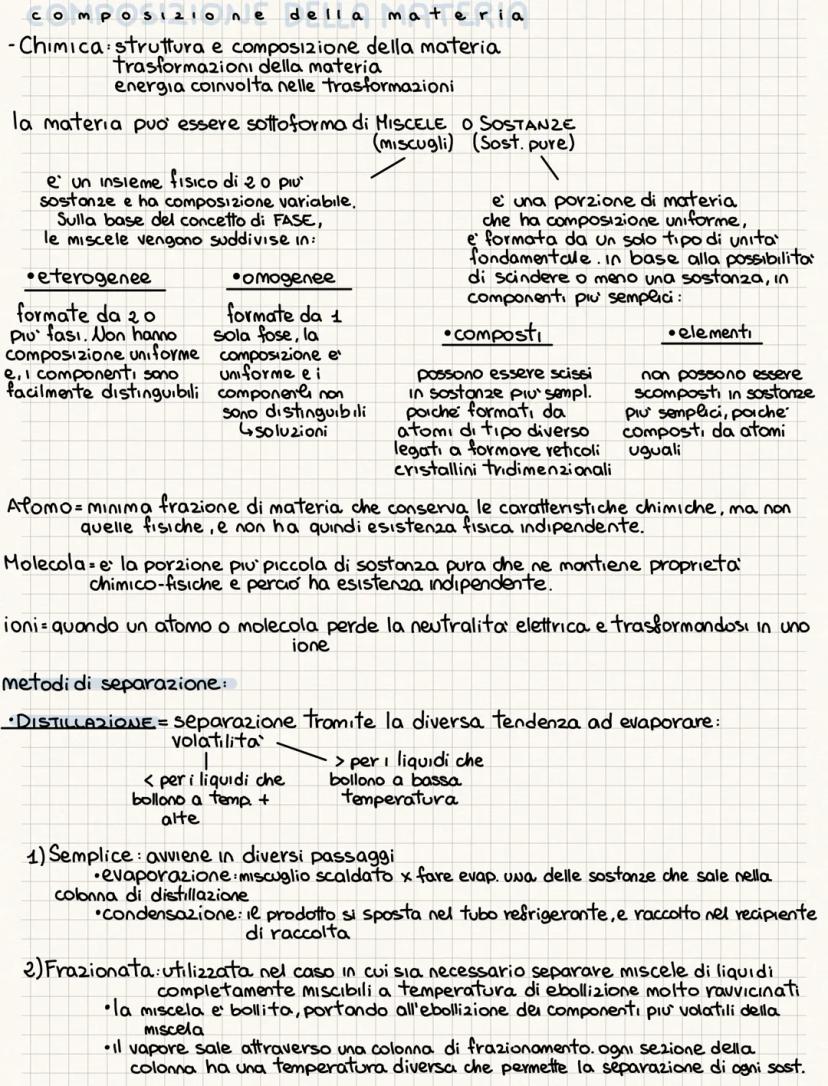 COMPOSIZIONE DELLA MATERIA
composizione della materia
- Chimica: struttura e composizione della materia
trasformazioni della materia
energia coinvolta nelle trasformazioni
la materia puo' essere sottoforma di MISCELE O SOSTANZE
(miscugli) (Sost. pure)
e' un insieme fisico di 2 o piu'
sostanze e ha composizione variabile.
Sulla base del concetto di FASE,
le miscele vengono suddivise in:
e' una porzione di materia
che ha composizione uniforme,
e' formata da un solo tipo di unita'
fondamentale. in base alla possibilita'
di scindere o meno una sostanza, in
componenti piu' semplici:
•eterogenee
formate da 2 o
piu' fasi. Non hanno
composizione uniforme
e, i componenti sono
facilmente distinguibili
•omogenee
formate da 1
sola fase, la
composizione e'
uniforme e i
componenti non
sono distinguibili
↳soluzioni
•composti
possono essere scissi
in sostanze piu' sempl.
poiche' formati da
atomi di tipo diverso
legati a formare reticoli
cristallini tridimenzionali
•elementi
non possono essere
scomposti in sostanze
piu' semplici, poiche'
composti da atomi
uguali
Atomo= minima frazione di materia che conserva le caratteristiche chimiche, ma non
quelle fisiche, e non ha quindi esistenza fisica indipendente.
Molecola= e' la porzione piu' piccola di sostanza pura che ne mantiene proprieta'
chimico-fisiche e percio' ha esistenza indipendente.
ioni= quando un atomo o molecola perde la neutralita' elettrica e trasformandosi in uno
ione
metodi di separazione:
•DISTILLAZIONE = separazione tramite la diversa tendenza ad evaporare:
volatilita'
< per i liquidi che
bollono a temp. +
alte
> per i liquidi che
bollono a bassa
temperatura
1) Semplice: avviene in diversi passaggi
•evaporazione: miscuglio scaldato x fare evap. una delle sostanze che sale nella
colonna di distillazione
•condensazione: il prodotto si sposta nel tubo refrigerante, e raccolto nel recipiente
di raccolta
2) Frazionata: utilizzata nel caso in cui sia necessario separare miscele di liquidi
completamente miscibili a temperatura di ebollizione molto ravvicinati
•la miscela e' bollita, portando all'ebollizione dei componenti piu' volatili della
miscela
•il vapore sale attraverso una colonna di frazionamento. ogni sezione della
colonna ha una temperatura diversa che permette la separazione di ogni sost.